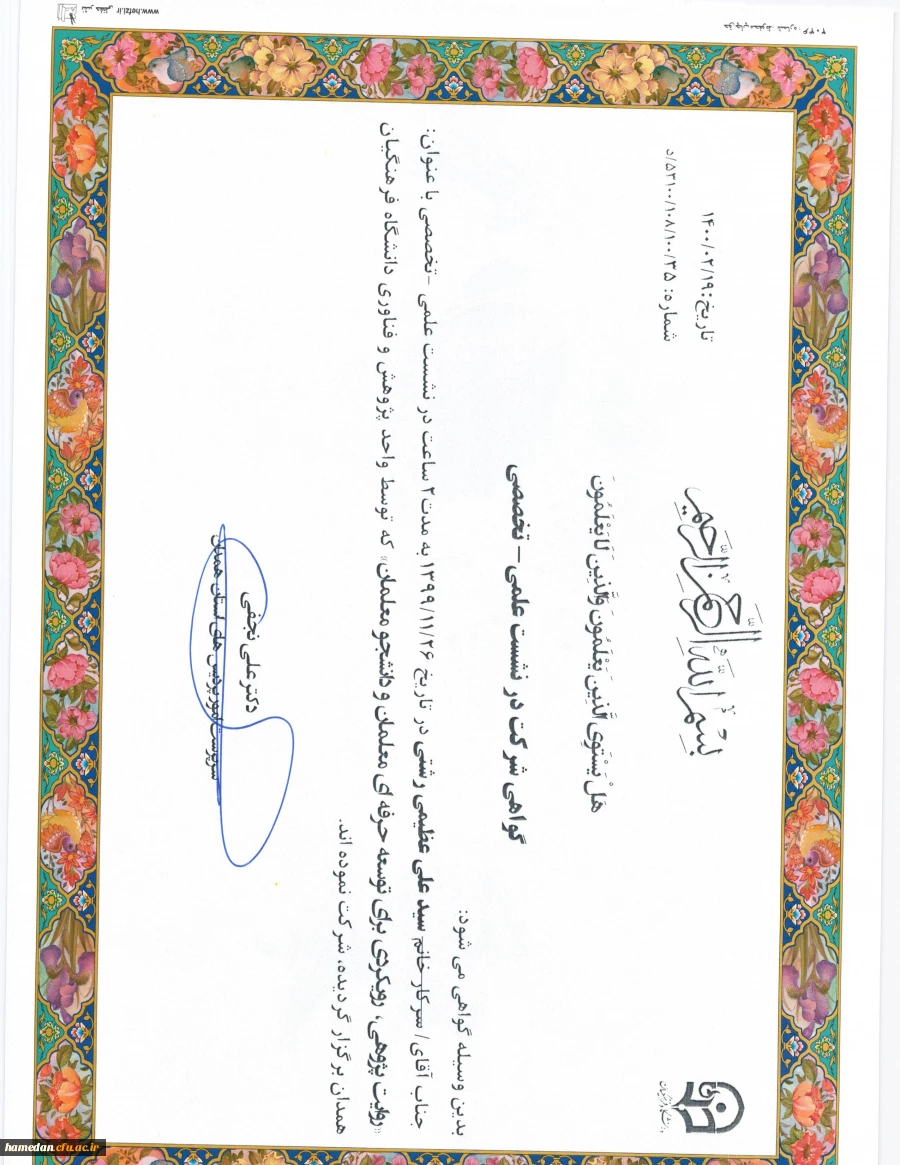 بسم الله الرحمن الرحیم
تاریخ: ۱۴۰۰/۰۲/۱۹
شماره: ۵۳۱۰۰/۱۰۸/۱۰۰/۳۵/د
هَلْ یَسْتَوِی الَّذِینَ یَعْلَمُونَ وَالَّذِینَ لَا یَعْلَمُونَ
گواهی شرکت در نشست علمی – تخصصی
بدین وسیله گواهی می شود:
جناب آقای/ سرکار خانم سید علی عظیمی رشتی در تاریخ ۱۳۹۹/۱۱/۲۶ به مدت ۲ ساعت در نشست علمی -تخصصی با عنوان:
«روایت پژوهی، رویکردی برای توسعه حرفه ای معلمان و دانشجو معلمان» که توسط واحد پژوهش و فناوری دانشگاه فرهنگیان
همدان برگزار گردیده، شرکت نموده اند.
دکتر علی نجفی
سرپرست امور پردیس های استان همدان
www.hefzi.ir
hamedan.cfu.ac.ir